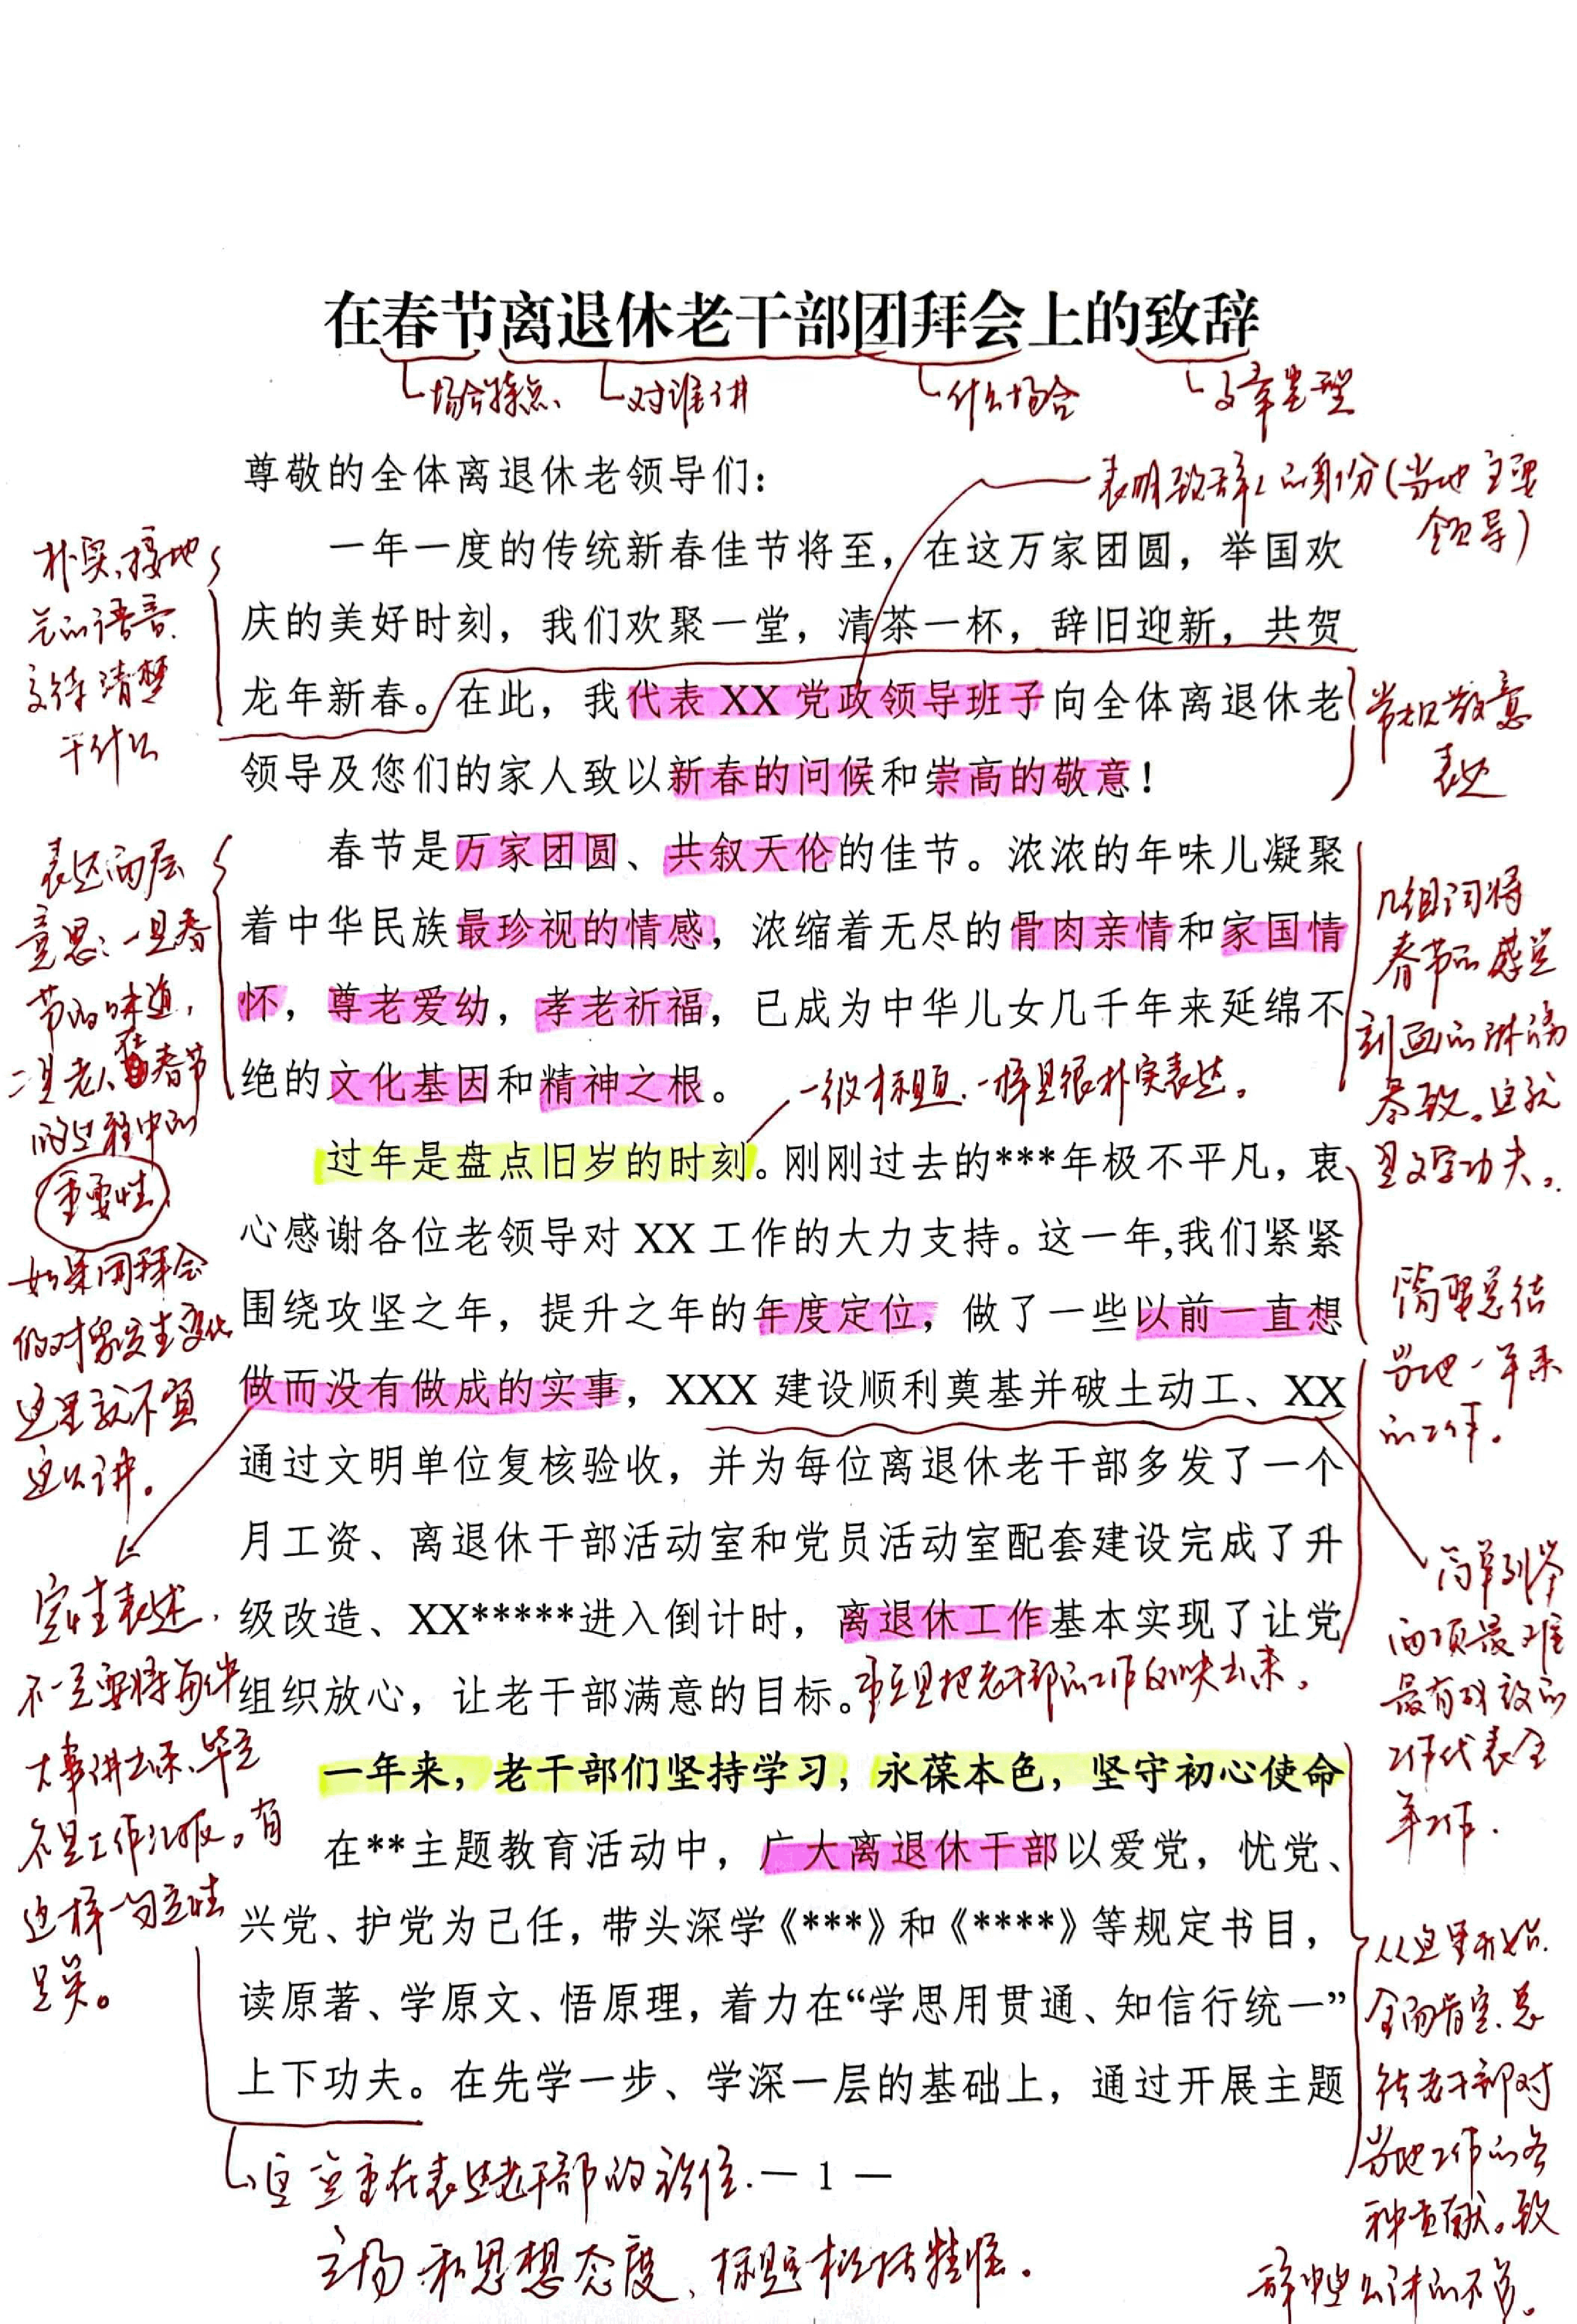 在春节离退休老干部团拜会上的致辞
场合特点、
对谁讲
什么场合
文章类型
尊敬的全体离退休老领导们：
表明致辞人的身份(当地主要
领导)
一年一度的传统新春佳节将至，在这万家团圆，举国欢
庆的美好时刻，我们欢聚一堂，清茶一杯，辞旧迎新，共贺
龙年新春。在此，我代表 XX 党政领导班子向全体离退休老
领导及您们的家人致以新春的问候和崇高的敬意！
朴实、接地
气的语言
交待清楚
干什么
常规敬意
表达
春节是万家团圆、共叙天伦的佳节。浓浓的年味儿凝聚
着中华民族最珍视的情感，浓缩着无尽的骨肉亲情和家国情
怀，尊老爱幼，孝老祈福，已成为中华儿女几千年来延绵不
绝的文化基因和精神之根。
表达两层
意思：一是春
节的味道，
二是老人在春节
的过程中的
重要性
如果团拜会
的对象发生变化
这里就不宜
这么讲。
几组词将
春节的感觉
刻画的淋漓
尽致。这就
是文字功夫。
一级标题、一样是很朴实表达。
过年是盘点旧岁的时刻。刚刚过去的***年极不平凡，衷
心感谢各位老领导对 XX 工作的大力支持。这一年,我们紧紧
围绕攻坚之年，提升之年的年度定位，做了一些以前一直想
做而没有做成的实事，XXX 建设顺利奠基并破土动工、XX
通过文明单位复核验收，并为每位离退休老干部多发了一个
月工资、离退休干部活动室和党员活动室配套建设完成了升
级改造、XX*****进入倒计时，离退休工作基本实现了让党
组织放心，让老干部满意的目标。
简要总结
当地一年来
的工作。
简单列举
两项最难
最有成效的
工作代表全
年工作.
定性表述，
不一定要将每件
大事讲出来、毕竟
不是工作汇报。有
这样一句定性
足矣。
重点是把老干部的工作反映出来。
一年来，老干部们坚持学习，永葆本色，坚守初心使命
在**主题教育活动中，广大离退休干部以爱党，忧党、
兴党、护党为己任，带头深学《***》和《****》等规定书目，
读原著、学原文、悟原理，着力在“学思用贯通、知信行统一”
上下功夫。在先学一步、学深一层的基础上，通过开展主题
从这里开始.
全面肯定、总
结老干部对
当地工作的各
种贡献。致
辞中这么讲的不多。
— 1 —
立场和思想态度、标题概括精练.